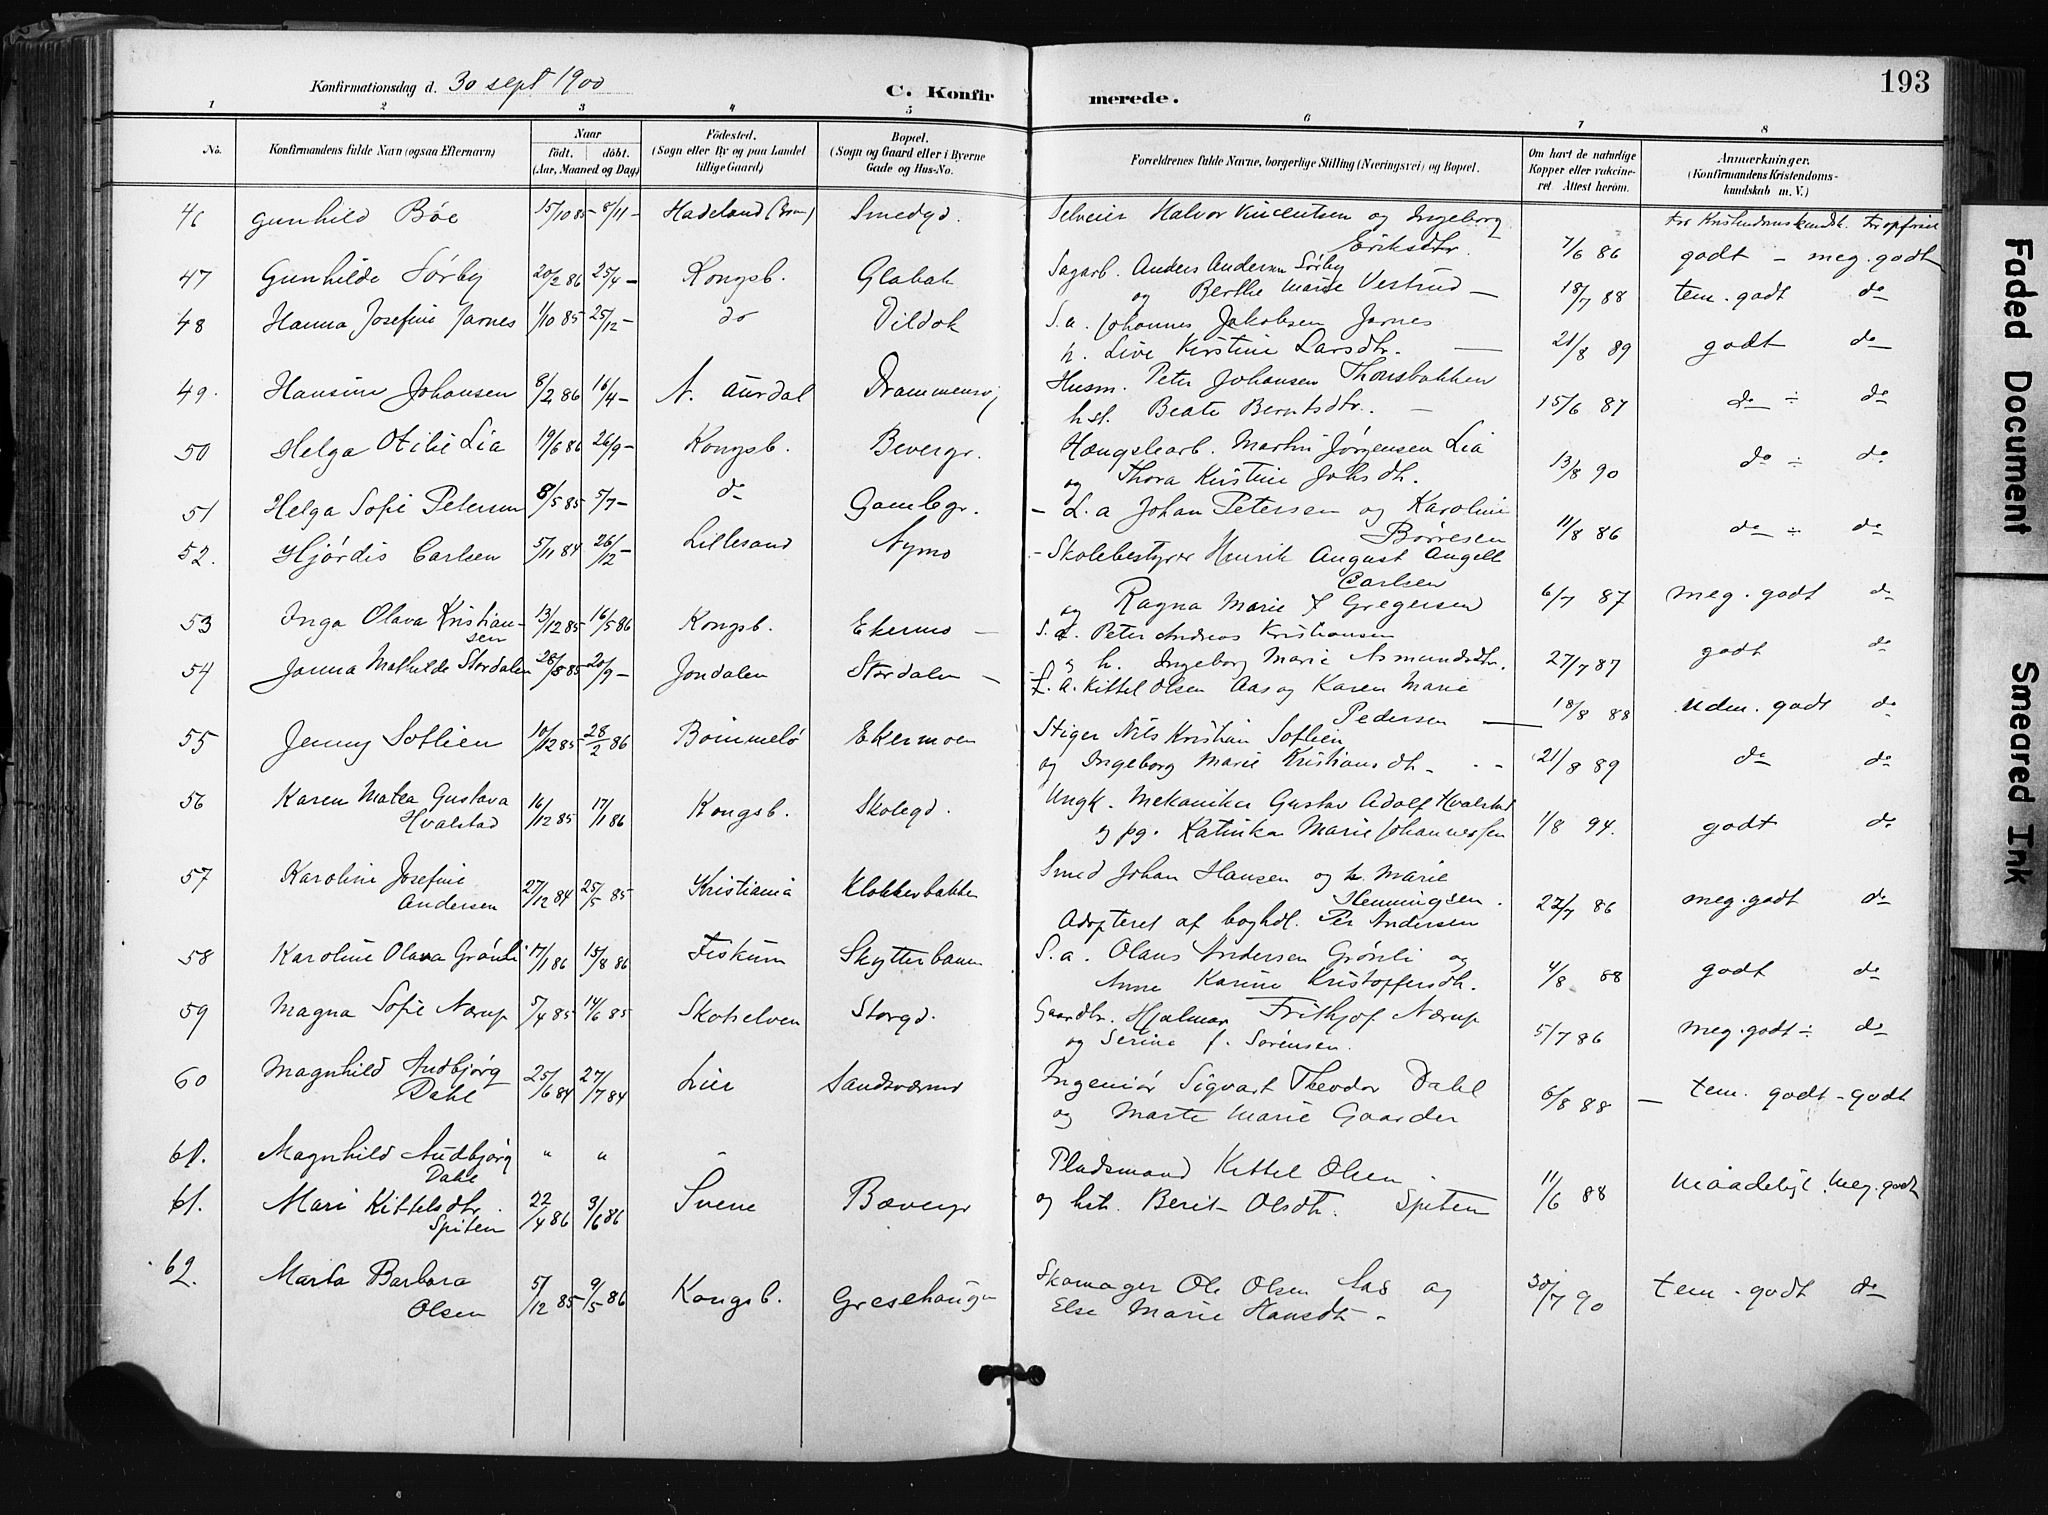 Konfirmationsdag d. 30 sept 1900
C. Konfirmerede.
193
1 2 3 4 5 6 7 8
No.
Konfirmandens fulde Navn (ogsaa Efternavn)
Naar
födt. döbt.
(Aar, Maaned og Dag)
Födested.
(Sogn eller By og paa Landet
tillige Gaard)
Bopæl.
(Sogn og Gaard eller i Byerne
Gade og Hus-No.
Forældrenes fulde Navne, borgerlige Stilling (Næringsvei) og Bopæl.
Om havt de naturlige
Kopper eller vakcine-
ret. Attest herom.
Anmærkninger.
(Konfirmandens Kristendoms-
kundskab m. V.)
for Kristendomskundsk. for opførsel
46 Gunhild Bøe 15/10 85 8/11 - Hadeland Smedgd. Selveier Halvor Vincentsen og Ingeborg
Eriksdtr. 7/6 86 godt - meg. godt
47 Gunhilde Sørby 20/2 86 25/4 - Kongsb. Glabak Sagarb. Anders Andersen Sørby
og Berthe Marie Vestrud - 18/7 88 tem. godt do
48 Hanna Josefine Jarnes 1/10 85 25/12 - do Vildok S.a. Johannes Jakobsen Jarnes
h. Live Kirstine Larsdtr. 21/8 89 godt do
49. Hansine Johansen 8/2 86 16/4 - N. Aurdal Drammensvj Husm. Peter Johansen Thonsbakken
hst. Beate Berntsdtr. - 15/6 87 do ÷ do
50 Helga Otilie Lia 19/6 86 26/9 - Kongsb. Bevergr. Hængslearb. Martin Jørgensen Lia
og Thora Kirstine Johsdtr. 13/8 90 do ÷ do
51 Helga Sofie Petersen 8/5 85 5/7 - do Gamlegr. - L.a Johan Petersen og Karoline
Børresen 11/8 86 do ÷ do
52. Hjørdis Carlsen 5/11 84 26/12 - Lillesand Nymo - Skolebestyrer Henrik August Angell
Carlsen
og Ragna Marie f Gregersen 6/7 87 meg. godt do
53 Inga Olava Kristian-
sen 13/12 85 16/5 86 Kongsb. Ekermo - S.a. Peter Andreas Kristiansen
og h. Ingeborg Marie Asmundsdtr. 27/7 87 godt do
54 Janna Mathilde Stordalen 28/8 85 20/9 - Jondalen Stordalen - L.a. Kittel Olsen Aas og Karen Marie
Pedersen 18/8 88 uden. godt do
55 Jenny Sotlien 10/12 85 28/2 86 Bömmelö Ekermoen Stiger Nils Kristian Sotlien
og Ingeborg Marie Kristiansdtr - 21/8 89 do do
56 Karen Matea Gustava
Hvalstad 16/12 85 17/1 86 Kongsb. Skolegd. Ungk. Mekaniker Gustav Adolf Hvalstad
og pg. Katinka Marie Johannessen 1/8 94. godt do
57 Karoline Josefine
Andersen 27/12 84 25/5 85 Kristiania Klokkerbakken Smed Johan Hansen og h. Marie
Henningsen.
Adopteret af boghdl. Per Andersen 22/7 86 meg. godt do
58 Karoline Olava Grønli 17/1 86 15/8 86 Fiskum Skytterbanen S.a. Olaus Andersen Grønli og
Anne Karine Kristoffersdtr. 4/8 88 godt do
59 Magna Sofie Nærup 5/4 85 14/6 85 Skotselven Storgd. Gaardbr. Hjalmar Frithjof Nærup
og Serine f. Sørensen. 5/7 86 meg. godt ÷ do
60 Magnhild Audbjørg
Dahl 25/6 84 27/7 84 Lier Sandsværmo Ingeniør Sigvart Theodor Dahl
og Marte Marie Gaarder 6/8 88 - tem. godt - godt
61. Magnhild Audbjørg
Dahl " "
61. Mari Kittelsdtr.
Spiten 22/4 86 9/6 86 Svene Bævergr Pladsmand Kittel Olsen
og hst. Berit Olsdtr. Spiten 11/6 88 maadeligt. meg. godt
62. Marta Barbara
Olsen 5/12 85 9/5 86 Kongsb. Gresehaugen Skomager Ole Olsen Aas og
Else Marie Hansdtr - 30/7 90 tem. godt do
Faded Document
Smeared Ink